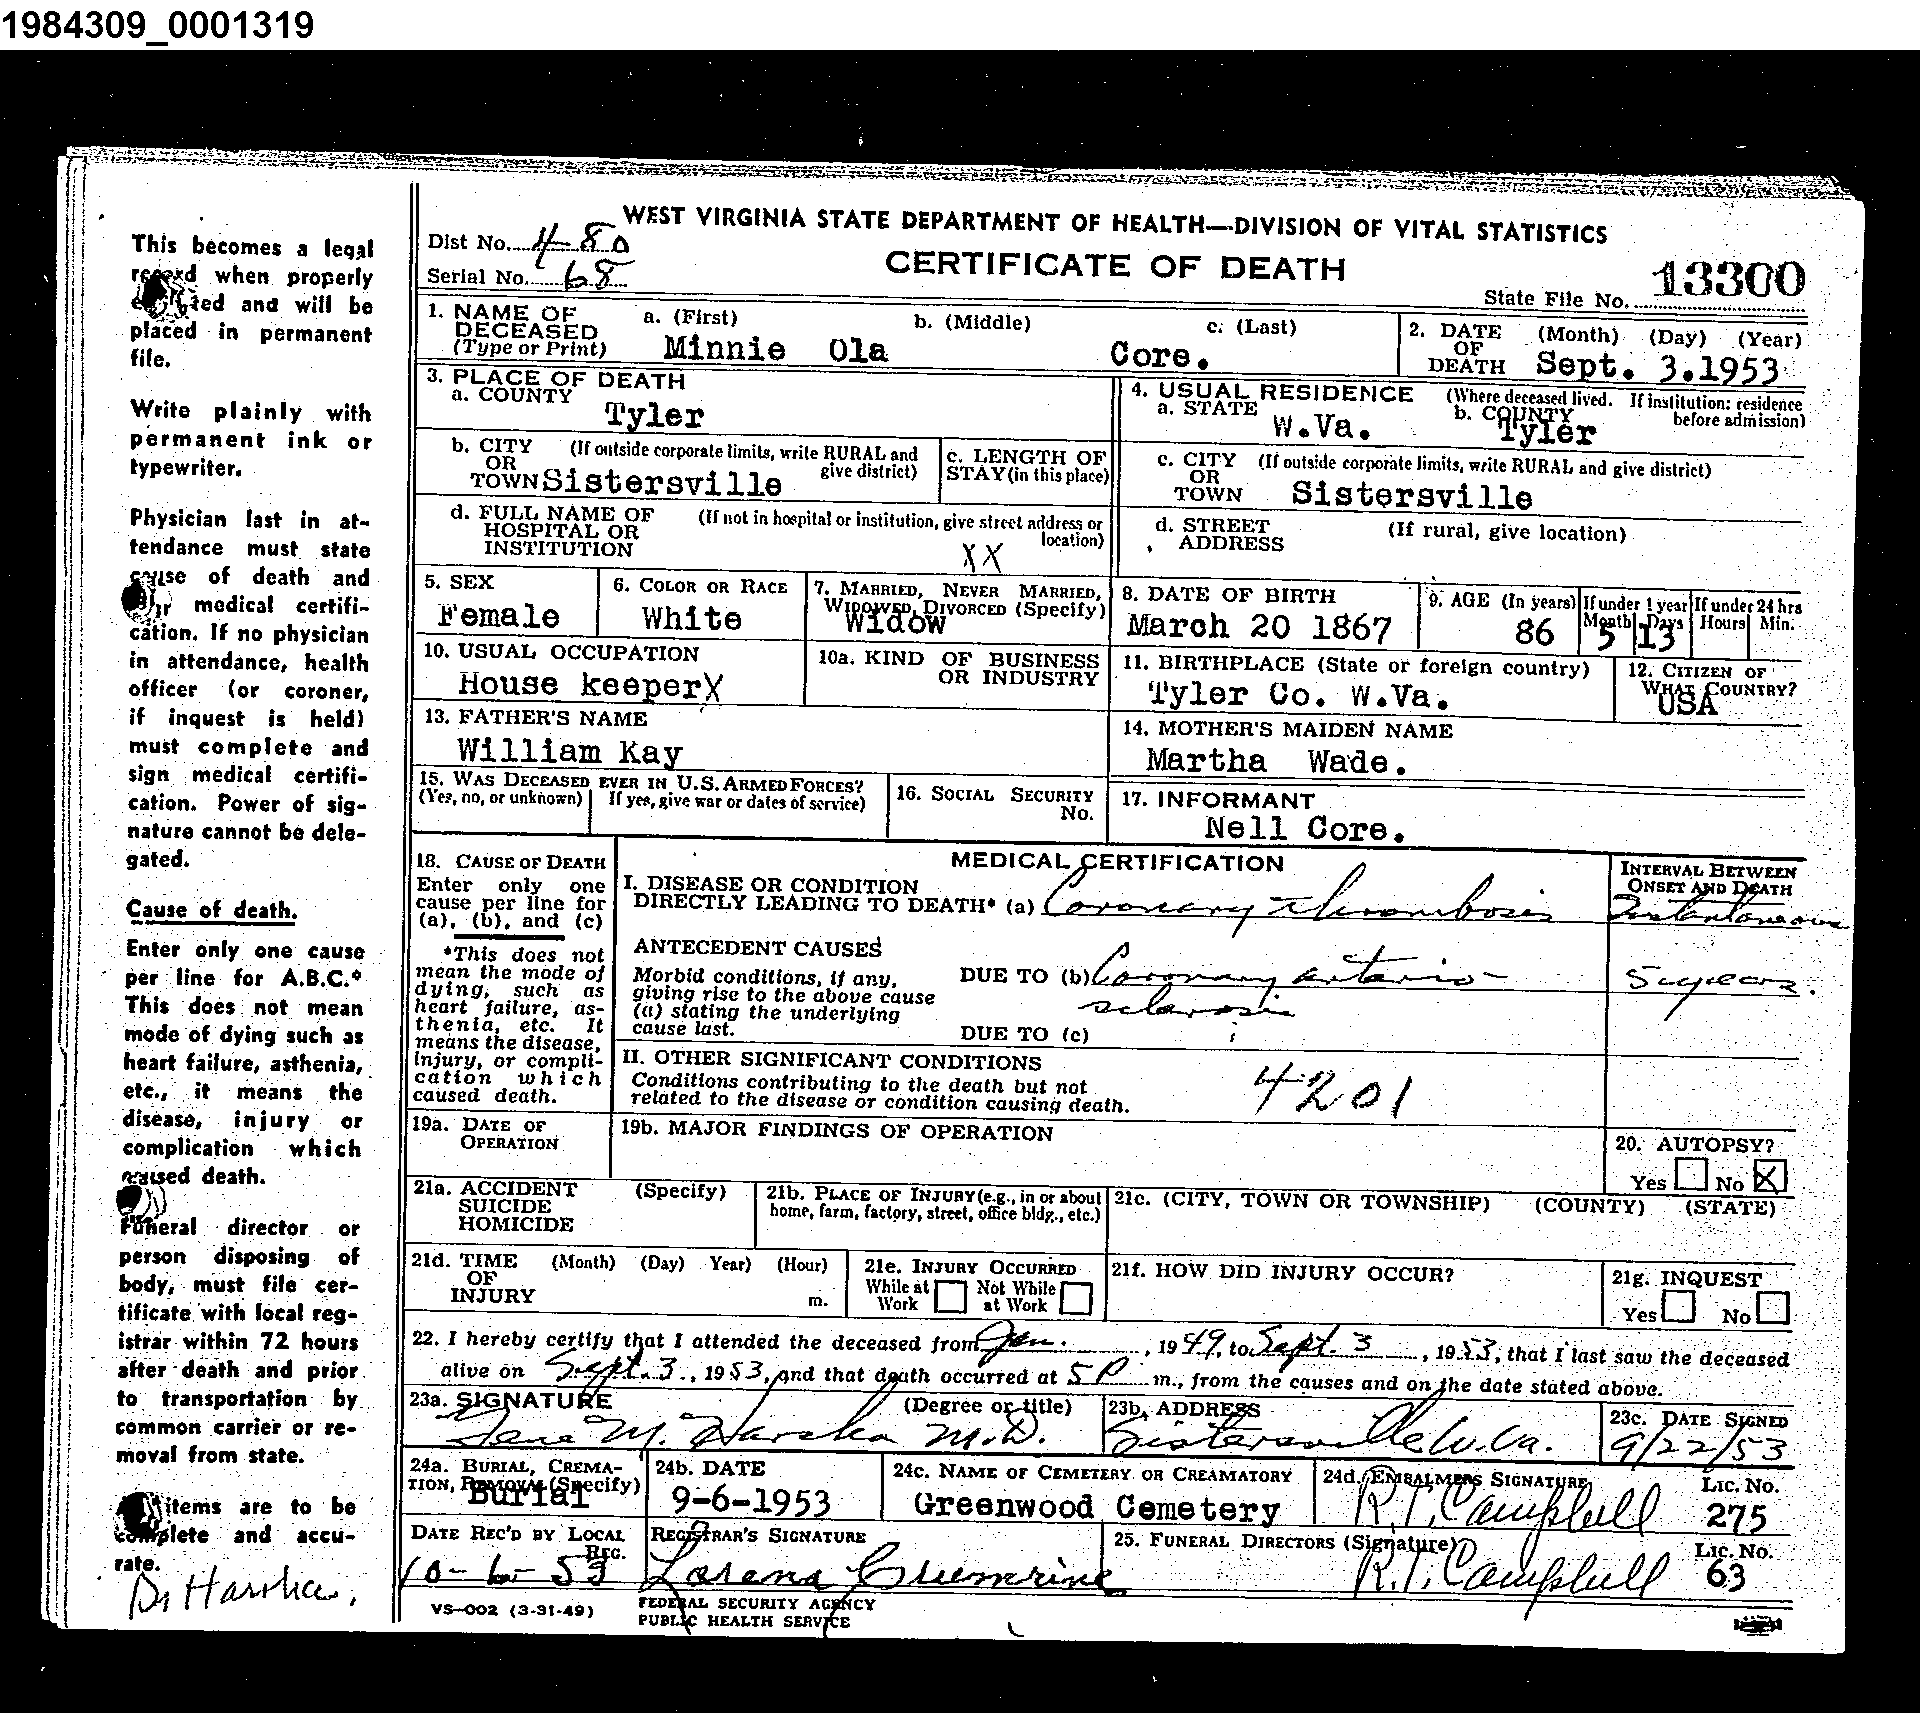 1984309_0001319
This becomes a legal
when properly
and will be
placed in permanent
file.
Write plainly with
permanent ink or
typewriter.
Physician last in at-
tendance must state
cause of death and
medical certifi-
cation. If no physician
in attendance, health
officer (or coroner,
if inquest is held)
must complete and
sign medical certifi-
cation. Power of sig-
nature cannot be dele-
gated.
Cause of death.
Enter only one cause
per line for A.B.C.*
This does not mean
mode of dying such as
heart failure, asthenia,
etc., it means the
disease, injury or
complication which
caused death.
Funeral director or
person disposing of
body, must file cer-
tificate with local reg-
istrar within 72 hours
after death and prior
to transportation by
common carrier or re-
moval from state.
items are to be
complete and accu-
rate.
Dr Harsha.
WEST VIRGINIA STATE DEPARTMENT OF HEALTH—DIVISION OF VITAL STATISTICS
Dist No. 480
CERTIFICATE OF DEATH
Serial No. 68
State File No. 13300
1. NAME OF DECEASED (Type or Print) a. (First) b. (Middle) c. (Last)
Minnie Ola Core.
2. DATE OF DEATH (Month) (Day) (Year)
Sept. 3.1953
3. PLACE OF DEATH
a. COUNTY Tyler
4. USUAL RESIDENCE (Where deceased lived. If institution: residence before admission)
a. STATE W.Va. b. COUNTY Tyler
b. CITY OR TOWN (If outside corporate limits, write RURAL and give district) Sistersville
c. LENGTH OF STAY (in this place)
c. CITY OR TOWN (If outside corporate limits, write RURAL and give district) Sistersville
d. FULL NAME OF HOSPITAL OR INSTITUTION (If not in hospital or institution, give street address or location) XX
d. STREET ADDRESS (If rural, give location)
5. SEX Female
6. COLOR OR RACE White
7. MARRIED, NEVER MARRIED, WIDOWED, DIVORCED (Specify) Widow
8. DATE OF BIRTH March 20 1867
9. AGE (In years) 86 If under 1 year Month 5 Days 13 If under 24 hrs Hours Min.
10. USUAL OCCUPATION House keeperX
10a. KIND OF BUSINESS OR INDUSTRY
11. BIRTHPLACE (State or foreign country) Tyler Co. W.Va.
12. CITIZEN OF WHAT COUNTRY? USA
13. FATHER'S NAME William Kay
14. MOTHER'S MAIDEN NAME Martha Wade.
15. WAS DECEASED EVER IN U.S. ARMED FORCES?
(Yes, no, or unknown) If yes, give war or dates of service)
16. SOCIAL SECURITY No.
17. INFORMANT Nell Core.
18. CAUSE OF DEATH
Enter only one
cause per line for
(a), (b), and (c)
*This does not
mean the mode of
dying, such as
heart failure, as-
thenia, etc. It
means the disease,
injury, or compli-
cation which
caused death.
MEDICAL CERTIFICATION
INTERVAL BETWEEN ONSET AND DEATH
I. DISEASE OR CONDITION
DIRECTLY LEADING TO DEATH* (a) Coronary thrombosis Instantaneous
ANTECEDENT CAUSES
Morbid conditions, if any,
giving rise to the above cause
(a) stating the underlying
cause last.
DUE TO (b) Coronary arterio-
sclerosis 5 years.
DUE TO (c)
II. OTHER SIGNIFICANT CONDITIONS
Conditions contributing to the death but not
related to the disease or condition causing death.
4201
19a. DATE OF OPERATION
19b. MAJOR FINDINGS OF OPERATION
20. AUTOPSY?
Yes No X
21a. ACCIDENT SUICIDE HOMICIDE (Specify)
21b. PLACE OF INJURY (e.g., in or about home, farm, factory, street, office bldg., etc.)
21c. (CITY, TOWN OR TOWNSHIP) (COUNTY) (STATE)
21d. TIME OF INJURY (Month) (Day) Year) (Hour) m.
21e. INJURY OCCURRED
While at Work Not While at Work
21f. HOW DID INJURY OCCUR?
21g. INQUEST
Yes No
22. I hereby certify that I attended the deceased from Jan. , 1949, to Sept. 3 , 1953, that I last saw the deceased
alive on Sept. 3., 1953, and that death occurred at 5 P m., from the causes and on the date stated above.
23a. SIGNATURE (Degree or title)
M. Harsha M.D.
23b. ADDRESS
Sistersville W.Va.
23c. DATE SIGNED
9/22/53
24a. BURIAL, CREMA-
TION, REMOVAL (Specify)
Burial
24b. DATE
9-6-1953
24c. NAME OF CEMETERY OR CREAMATORY
Greenwood Cemetery
24d. EMBALMERS SIGNATURE
R.T. Campbell
LIC. No.
275
DATE REC'D BY LOCAL REG.
10-6-53
REGISTRAR'S SIGNATURE
Lorena Crumrine
25. FUNERAL DIRECTORS (Signature)
R.T. Campbell
LIC. No.
63
VS-002 (3-31-49)
FEDERAL SECURITY AGENCY
PUBLIC HEALTH SERVICE